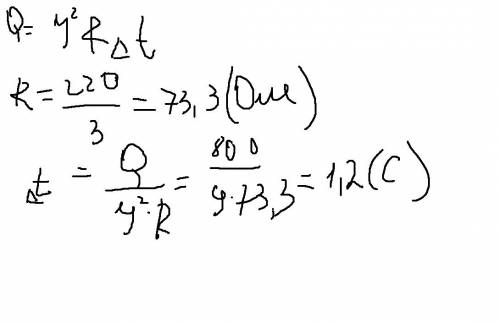 Q = У² R Δt
R = 220/3 = 73,3 (Ом)
Δt = Q/(У²·R) = 800/(9·73,3) = 1,2 (С)